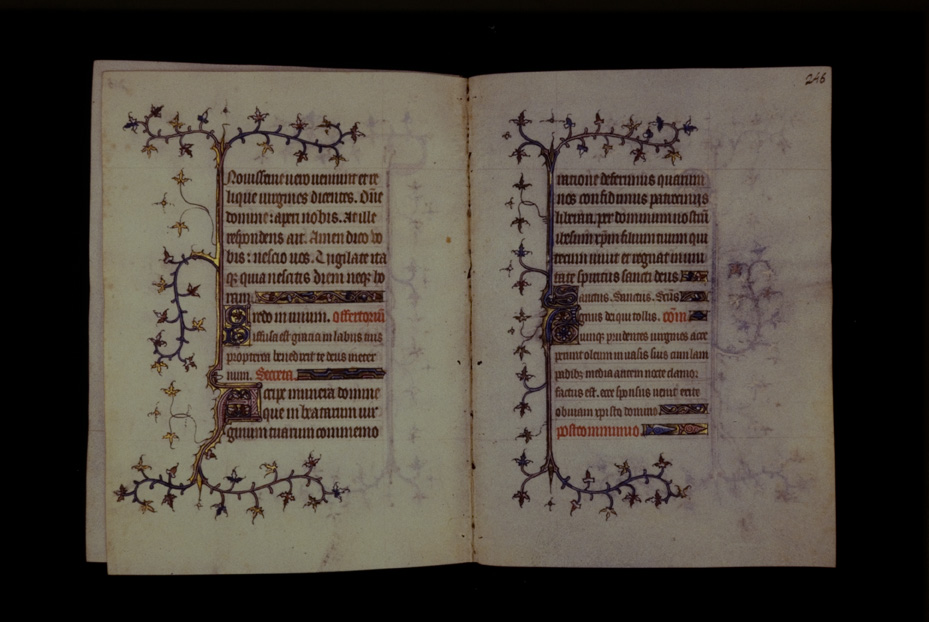 Nouissime uero ueniunt et re
lique uirgines dicentes. Dn̄e
domine: aperi nobis. At ille
respondens ait. Amen dico uo
bis: nescio uos. Vigilate ita
q̄ quia nescitis diem neqꝫ ho
ram.
Credo in unum. offertoriū
Diffusa est gracia in labiis tuis
propterea benedixit te deus in eter
num. Secreta.
Accipe munera domine
que in beatarum uir
ginum tuarum commemo
246
racione deferimus quarum
nos confidimus patrociniis
liberari. per dominum nostrū
ihesum xp̄m filium tuum qui
tecum uiuit et regnat in uni
tate spiritus sancti deus
Sanctus. Sanctus. Scūs
Agnus dei qui tollis. cōm̄
Quinqꝫ prudentes uirgines acce
perunt oleum in uasis suis cum lam
padibꝫ media autem nocte clamor
factus est. ecce sponsus uenit exite
obuiam xpisto domino
postcommunio